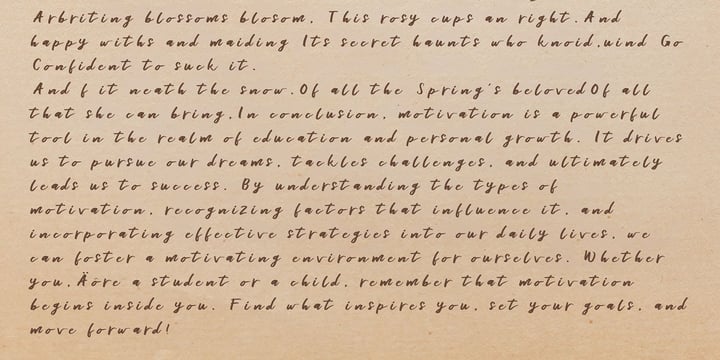 Arbriting blossoms blosom, This rosy cups an right.And
happy withs and maiding Its secret haunts who knoid,uind Go
Confident to suck it.
And f it neath the snow.Of all the Spring's belovedOf all
that she can bring.In conclusion, motivation is a powerful
tool in the realm of education and personal growth. It drives
us to pursue our dreams, tackles challenges, and ultimately
leads us to success. By understanding the types of
motivation, recognizing factors that influence it, and
incorporating effective strategies into our daily lives, we
can foster a motivating environment for ourselves. Whether
you,Äôre a student or a child, remember that motivation
begins inside you. Find what inspires you, set your goals, and
move forward!